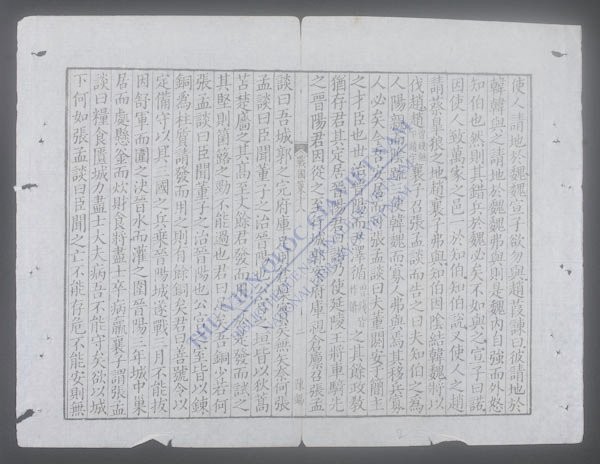 使人請地於魏魏宣子欲勿與趙葭諫曰彼請地於
韓韓與之請地於魏魏弗與則是魏內自強而外怒
知伯也然則其錯兵於魏必矣不如與之宣子曰諾
因使人致萬家之邑一於知伯知伯說又使人之趙
請蔡皋狼之地趙襄子弗與知伯因陰結韓魏將以
伐趙趙襄子召張孟談而告之曰夫知伯之為
人陽親而陰疏三使韓魏而寡人弗與焉其移兵寡
人必矣今吾安居而可張孟談曰夫董閼安于簡主
之才臣也世治晉陽而尹澤循之其餘政教
猶存君其定居晉陽君曰諾乃使延陵王將車騎先
之晉陽君因從之至行城郭案府庫視倉廩召張孟
戰國策
談曰吾城郭之完府庫足用倉廩實矣無矢奈何張
孟談曰臣聞董子之治晉陽也公宮之垣皆以狄蒿
苫楚廧之其高至丈餘君發而用之於是發而試之
其堅則箘簬之勁不能過也君曰足矣吾銅少若何
張孟談曰臣聞董子之治晉陽也公宮之室皆以鍊
銅為柱質請發而用之則有餘銅矣君曰善號令以
定備守以具三國之兵乘晉陽城遂戰三月不能拔
因舒軍而圍之決晉水而灌之圍晉陽三年城中巢
居而處懸釜而炊財食將盡士卒病羸襄子謂張孟
談曰糧食匱城力盡士大夫病吾不能守矣欲以城
下何如張孟談曰臣聞之亡不能存危不能安則無
THƯ VIỆN QUỐC GIA VIỆT NAM
NATIONAL LIBRARY OF VIETNAM